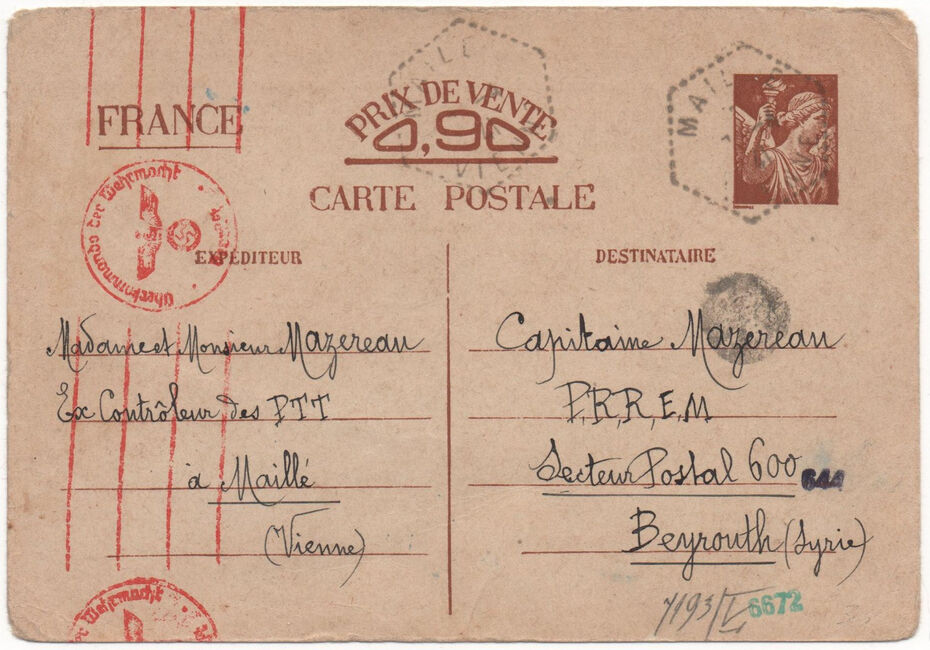 FRANCE
PRIX DE VENTE
0,90
CARTE POSTALE
MAILLÉ
VIENNE
MAILLÉ
Oberkommando der Wehrmacht
EXPÉDITEUR
Madame et Monsieur Mazereau
Ex Contrôleur des PTT
à Maillé
(Vienne)
DESTINATAIRE
Capitaine Mazereau
P.R.R.E.M
Secteur Postal 600
644
Beyrouth (Syrie)
7193/I
6672
der Wehrmacht